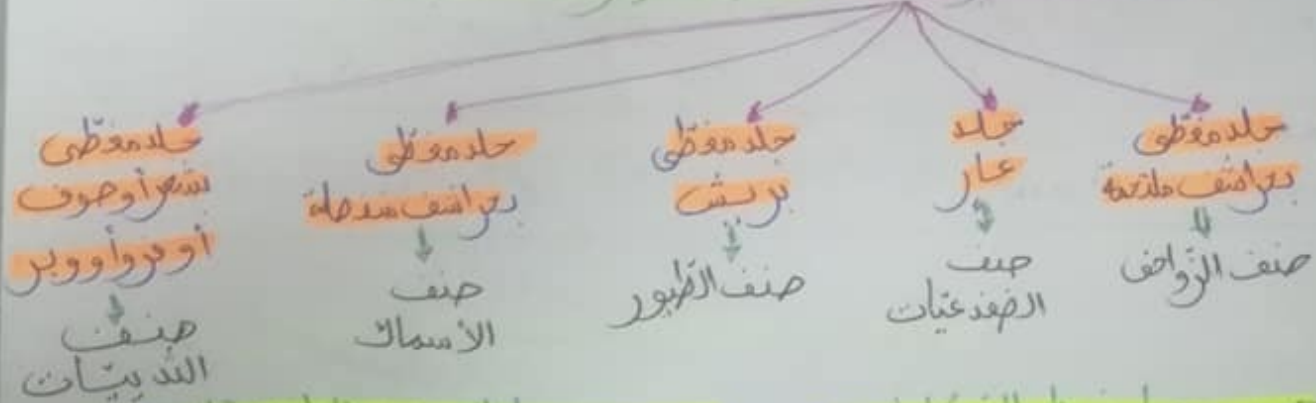 جلد مغطّى
بحراشف ملتحمة
صنف الزّواحف
جلد
عار
صنف
الضفدعيّات
جلد مغطّى
بريش
صنف الطّيور
جلد مغطّى
بحراشف منفصلة
صنف
الأسماك
جلد مغطّى
بشعر أو صوف
أو فرو أو وبر
صنف
الثدييّات